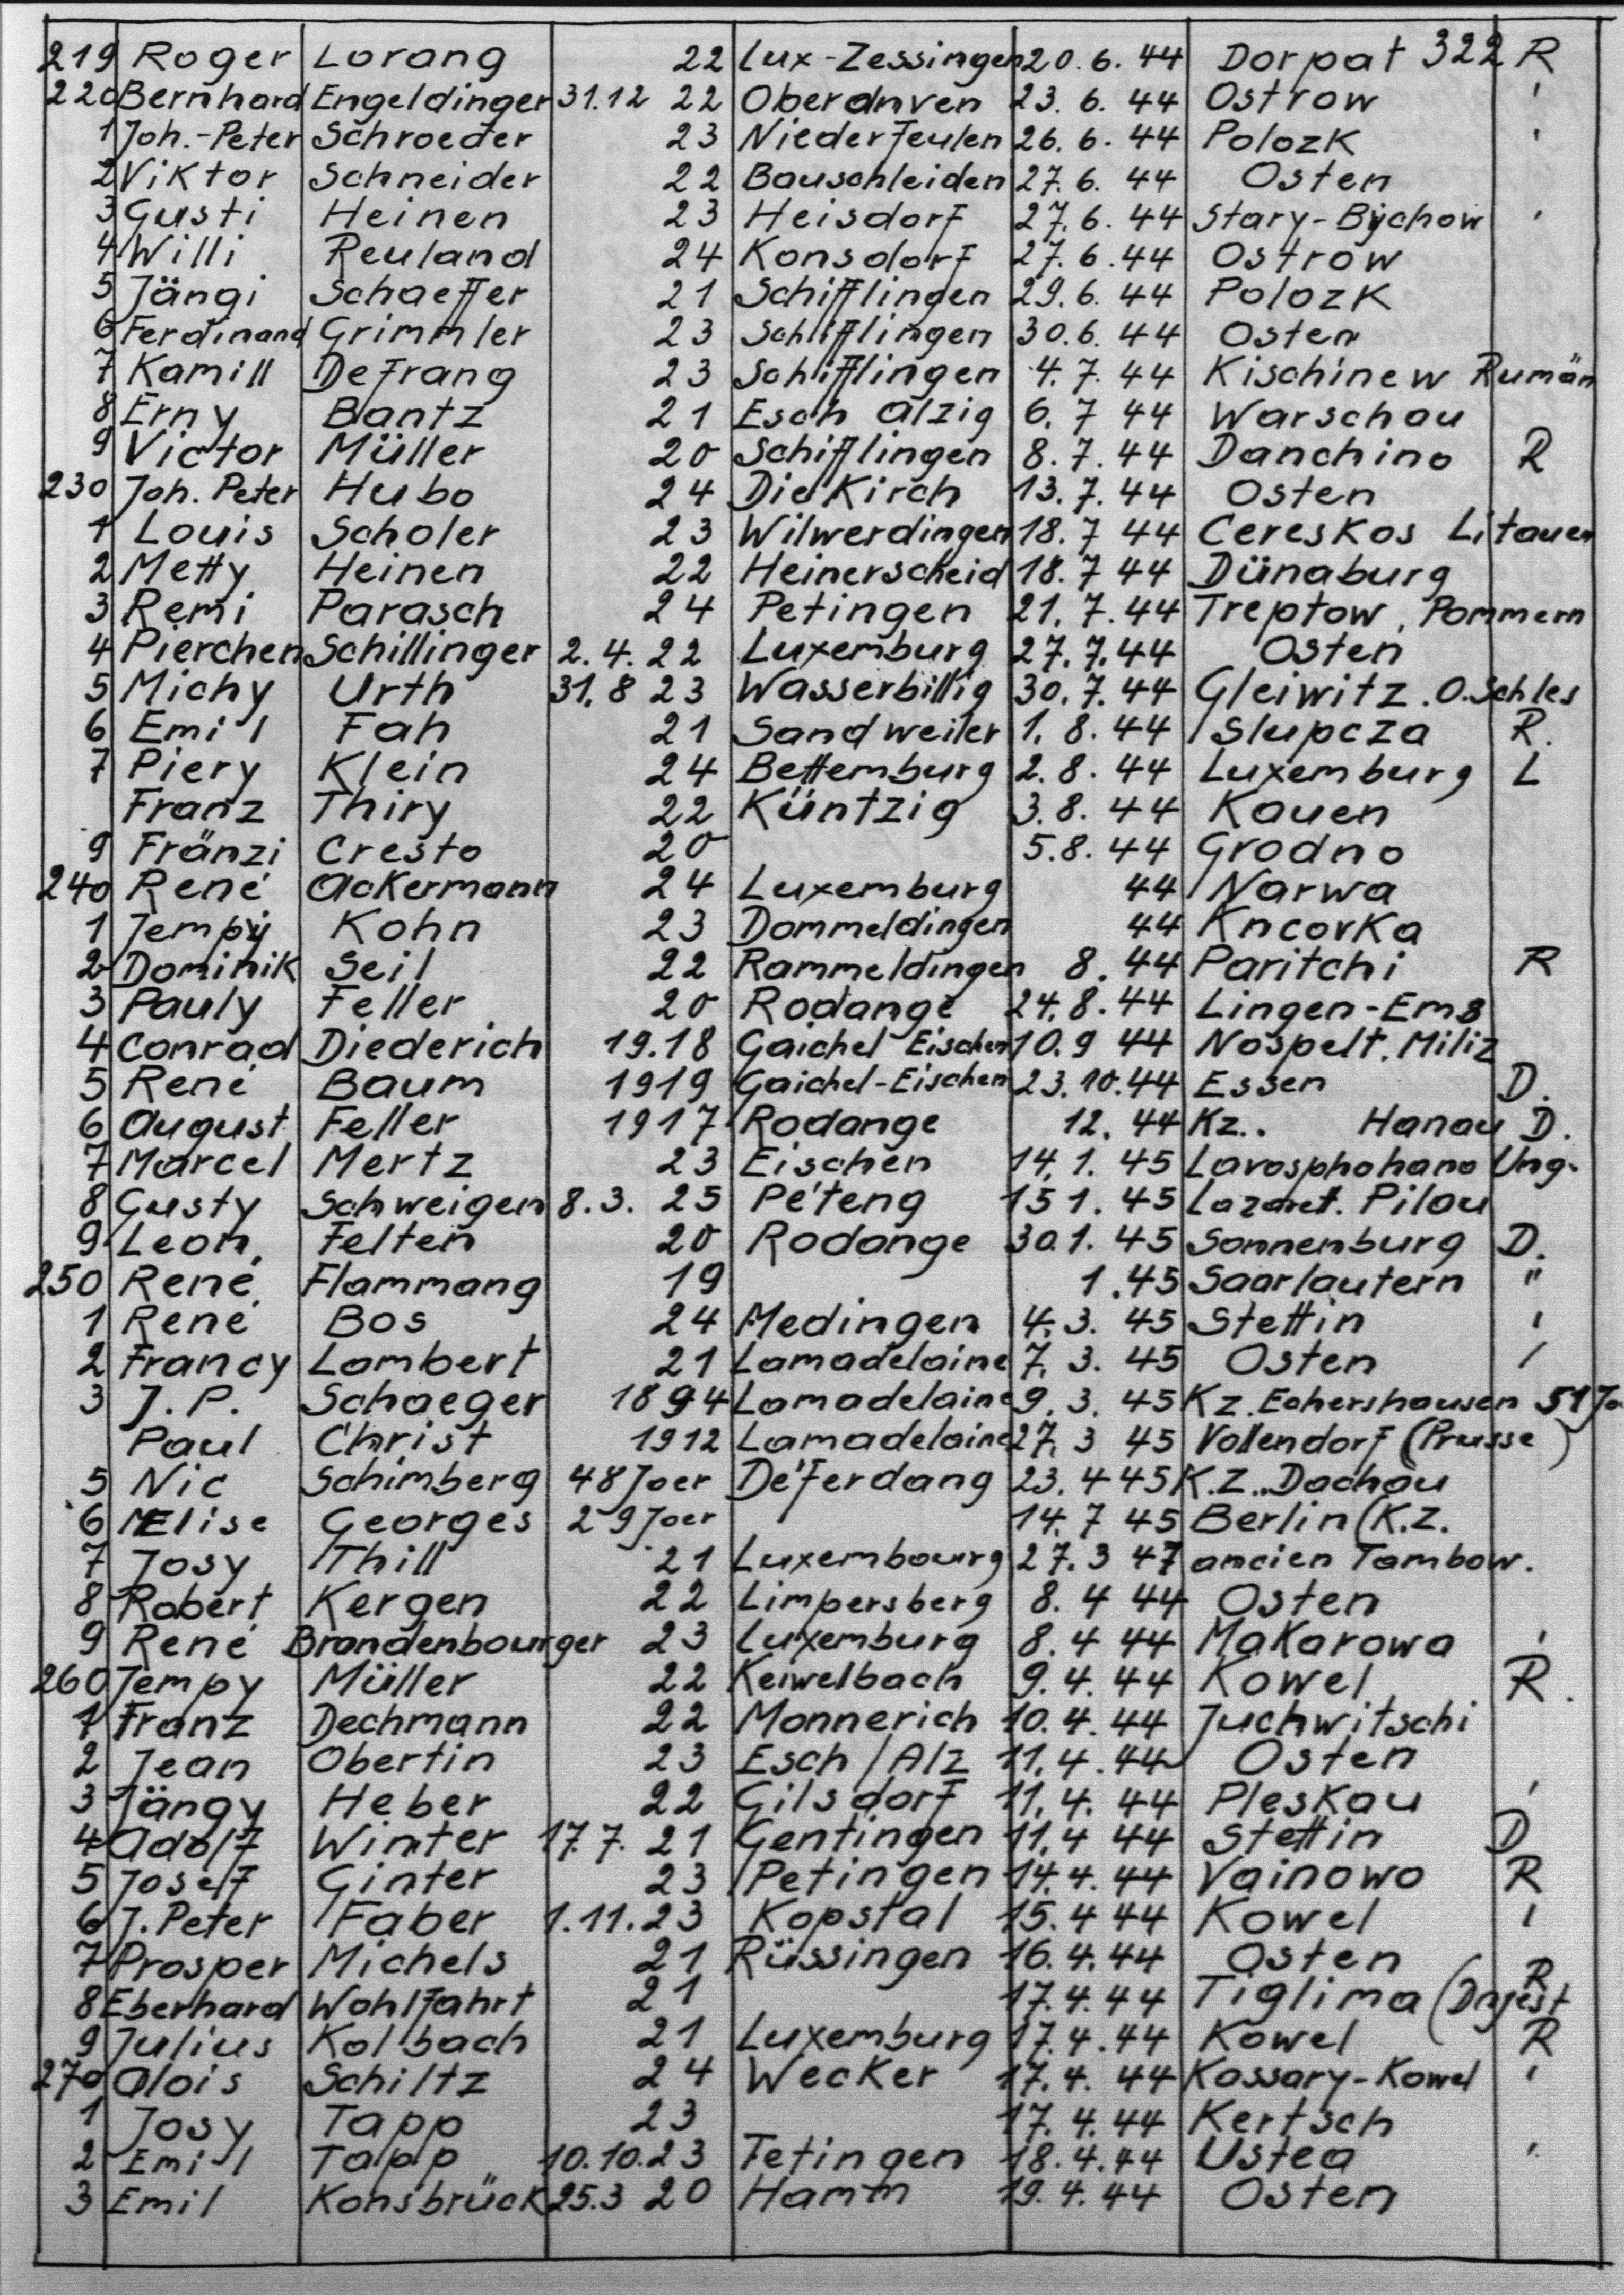 219 Roger Lorang 22 Lux-Zessingen 20.6.44 Dorpat 322 R
220 Bernhard Engeldinger 31.12 22 Oberanven 23.6.44 Ostrow '
1 Joh.-Peter Schroeder 23 Niederfeulen 26.6.44 Polozk '
2 Viktor Schneider 22 Bauschleiden 27.6.44 Osten
3 Gusti Heinen 23 Heisdorf 27.6.44 Stary-Bychow '
4 Willi Reuland 24 Konsdorf 27.6.44 Ostrow
5 Jängi Schaeffer 21 Schifflingen 29.6.44 Polozk
6 Ferdinand Grimmler 23 Schifflingen 30.6.44 Osten
7 Kamill Defrang 23 Schifflingen 4.7.44 Kischinew Rumän
8 Erny Bantz 21 Esch Alzig 6.7 44 Warschau
9 Victor Müller 20 Schifflingen 8.7.44 Danchino R
230 Joh. Peter Hubo 24 Diekirch 13.7.44 Osten
1 Louis Scholer 23 Wilwerdingen 18.7 44 Cereskos Litauen
2 Metty Heinen 22 Heinerscheid 18.7 44 Dünaburg
3 Remi Parasch 24 Petingen 21.7.44 Treptow, Pommern
4 Pierchen Schillinger 2.4.22 Luxemburg 27.7.44 Osten
5 Michy Urth 31.8 23 Wasserbillig 30.7.44 Gleiwitz.O.Schles
6 Emil Fah 21 Sandweiler 1.8.44 Slupcza R.
7 Piery Klein 24 Bettemburg 2.8.44 Luxemburg L
Franz Thiry 22 Küntzig 3.8.44 Kauen
9 Fränzi Cresto 20 5.8.44 Grodno
240 René Ackermann 24 Luxemburg 44 Narwa
1 Jempy Kohn 23 Dommeldingen 44 Kncorka
2 Dominik Seil 22 Rammeldingen 8.44 Paritchi R
3 Pauly Feller 20 Rodange 24.8.44 Lingen-Ems
4 Conrad Diederich 19.18 Gaichel Eischen 10.9 44 Nospelt. Miliz
5 René Baum 1919 Gaichel-Eischen 23.10.44 Essen D.
6 August Feller 1917 Rodange 12.44 Kz.. Hanau D.
7 Marcel Mertz 23 Eischen 14.1.45 Lavosphohano Ung.
8 Gusty Schweigen 8.3.25 Péteng 15 1.45 Lazaret. Pilau
9 Leon Felten 20 Rodange 30.1.45 Sonnenburg D.
250 René Flammang 19 1.45 Saarlautern "
1 René Bos 24 Medingen 4.3.45 Stettin '
2 Francy Lambert 21 Lamadelaine 7.3.45 Osten '
3 J.P. Schaeger 1894 Lamadelaine 9.3.45 Kz. Echershausen 51 Jo
Paul Christ 1912 Lamadelaine 27.3 45 Vollendorf (Prusse)
5 Nic Schimberg 48 Joer Déferdang 23.4 45 K.Z..Dachau
6 MElise Georges 29 Joer 14.7 45 Berlin (K.Z.
7 Josy Thill 21 Luxembourg 27.3 47 ancien Tambow.
8 Robert Kergen 22 Limpersberg 8.4 44 Osten
9 René Brandenbourger 23 Luxemburg 8.4 44 Makarowa '
260 Jempy Müller 22 Keiwelbach 9.4.44 Kowel R.
1 Franz Dechmann 22 Monnerich 10.4.44 Juchwitschi
2 Jean Obertin 23 Esch/Alz 11.4.44 Osten
3 Jängy Heber 22 Gilsdorf 11.4.44 Pleskau '
4 Adolf Winter 17.7.21 Gentingen 11.4 44 Stettin D
5 Josef Ginter 23 Petingen 14.4.44 Vainowo R
6 J. Peter Faber 1.11.23 Kopstal 15.4 44 Kowel '
7 Prosper Michels 21 Rüssingen 16.4.44 Osten
8 Eberhard Wohlfahrt 21 17.4.44 Tiglima (Dnjest R
9 Julius Kolbach 21 Luxemburg 17.4.44 Kowel R
270 Alois Schiltz 24 Wecker 17.4.44 Kossary-Kowel '
1 Josy Tapp 23 17.4.44 Kertsch
2 Emil Tapp 10.10.23 Tetingen 18.4.44 Ustea '
3 Emil Konsbrück 25.3 20 Hamm 19.4.44 Osten